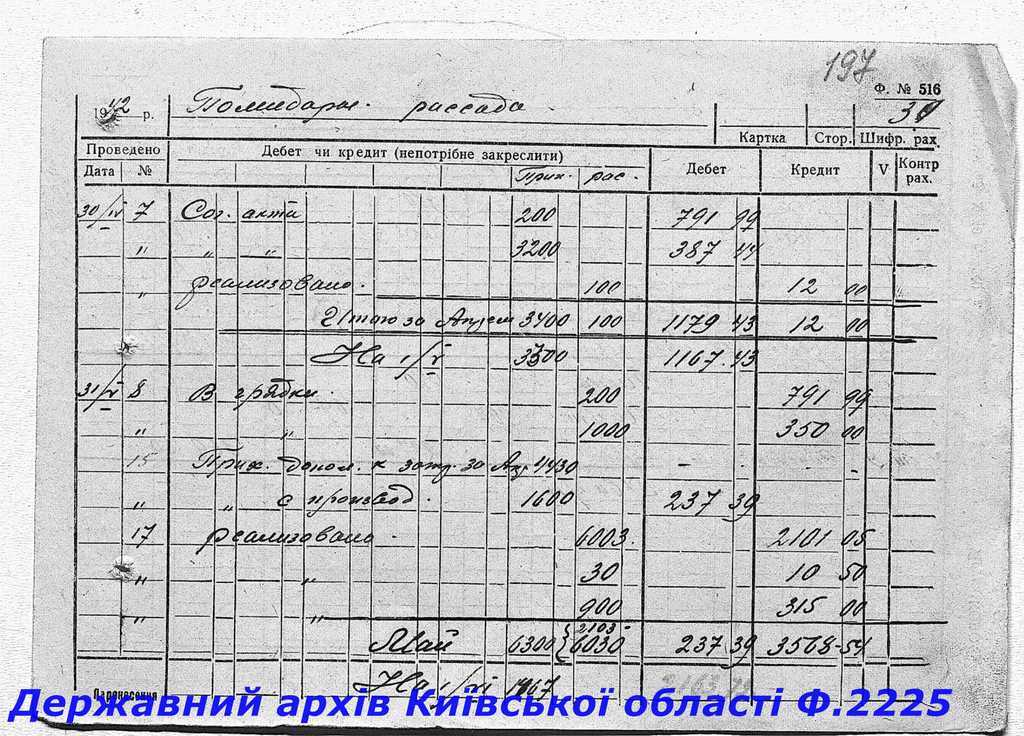 197
Ф. № 516
1942 р. Помидоры рассада
Картка Стор. Шифр. рах.
Проведено Дебет чи кредит (непотрібне закреслити) Дебет Кредит V Контр рах.
Дата № Прих. рас.
30/IV 7 Сог. акта 200 791 99
" " " 3200 387 44
" реализовано. 100 12 00
Итого за Апрель 3400 100 1179 43 12 00
На 1/V 3300 1167.43
31/V 8 В грядки. 200 791 99
" " 1000 350 00
15 Прих. допол. к затр. за Апр. 4430 - - -
" " с производ. 1600 237 39
17 реализовано 6003. 2101 05
" " 30 10 50
" " 900 315 00
Май 6300 2103 6030 237 39 3568-54
На 1/VI
Перенесення
Державний архів Київської області Ф.2225